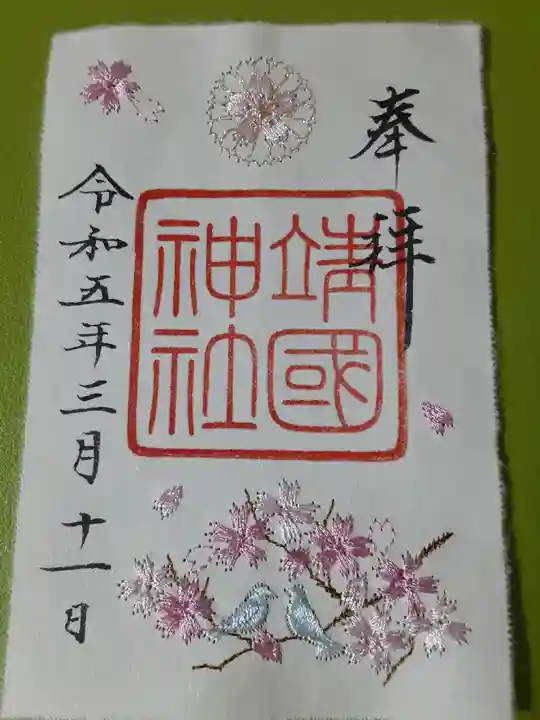 奉拝
靖國
神社
令和五年三月十一日